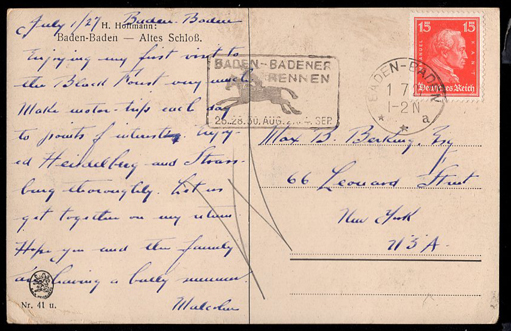 July 1/27 Baden-Baden
H. Hoffmann:
Baden-Baden — Altes Schloß.
Enjoying my first visit to
the Black Forest very much
Make motor-trips each day
to points of interest. Enjoy-
ed Heidelberg and Strass-
burg thoroughly. Let us
get together on my return
Hope you and the family
are having a bully summer.
Malcolm
Nr. 41 u.
BADEN-BADENER
RENNEN
26. 28. 30. AUG. SEP.
BADEN-BADEN
1 7
1-2 N
* * a
15 15
Deutsches Reich
Max B. Berking, Esq
66 Leonard Street
New York
USA.